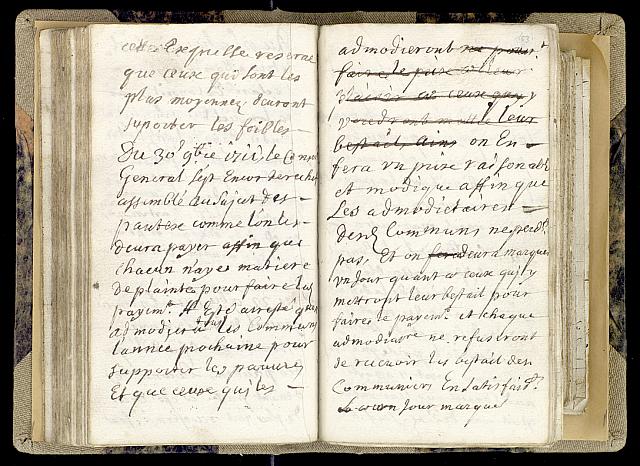 cette Exquelle reserve
que ceux qui sont les
plus moyennez deuront
suporter les foibles
Du 30e 9bre 1711, le Conseil
General s'est Encor derechef
assemblé au sujet des
pautere comme l'on les
deura payer affin que
chacun n'aye matiere
de plainte pour faire les
payemt. Il Est arresté que
admodiera tous les Communs
l'année prochaine pour
supporter les pauures
Et que ceux qui les
admodieront ne pour
faire le prix
ceux que y
voudront mettre leur
bestail, ains on En
fera un prix raisonable
et modique affin que
Les admodiataires
desd Communs ne perde
pas, Et on deura marquer
un Jour quant a ceux qui y
mettront leur bestail pour
faire le payemt. et chaque
admodiatre ne refuseront
de receuoir les bestail des
Communiers En satisfaist.
Jour marque